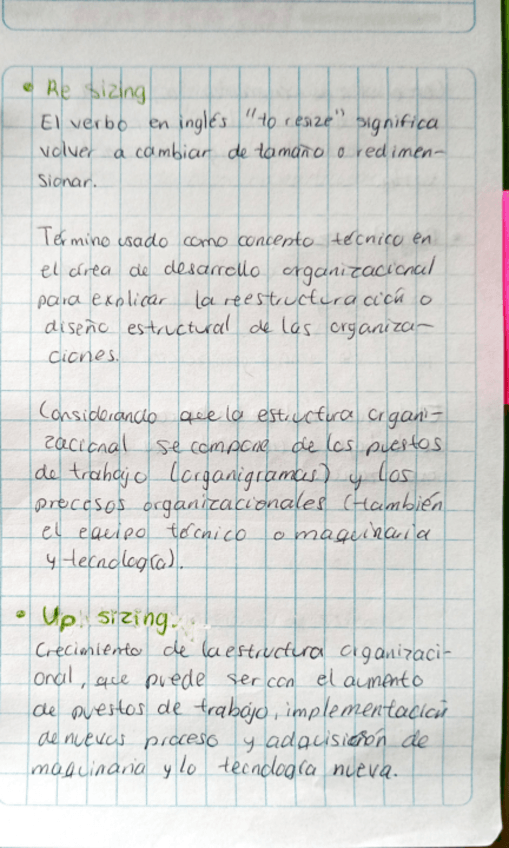 • Re sizing
El verbo en inglés "to resize" significa
volver a cambiar de tamaño o redimen-
sionar.
Término usado como concepto técnico en
el área de desarrollo organizacional
para explicar la reestructuración o
diseño estructural de las organiza-
ciones.
Considerando que la estructura organi-
zacional se compone de los puestos
de trabajo (organigramas) y los
procesos organizacionales (también
el equipo técnico o maquinaria
y tecnología).
• Up sizing.
Crecimiento de la estructura organizaci-
onal, que puede ser con el aumento
de puestos de trabajo, implementación
de nuevos proceso y adquisición de
maquinaria y lo tecnología nueva.